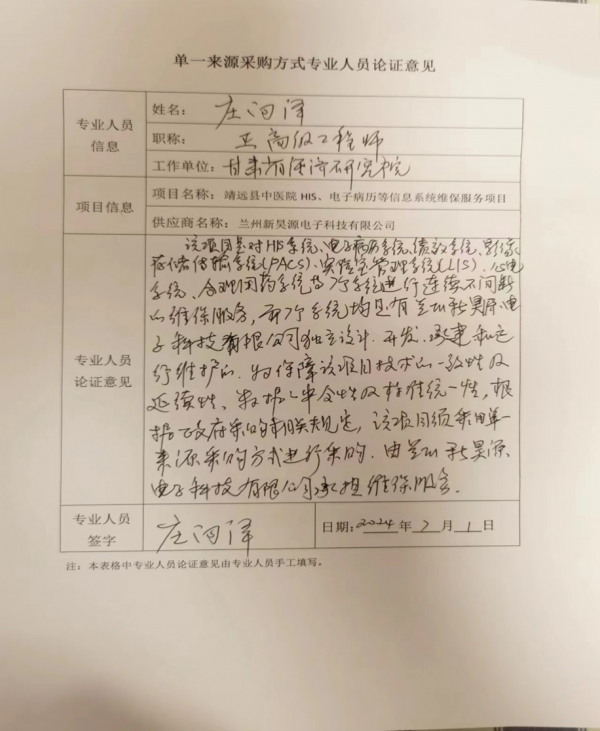 单一来源采购方式专业人员论证意见
专业人员
信息
姓名：庄河泽
职称：正高级工程师
工作单位：甘肃省经济研究院
项目信息
项目名称：靖远县中医院 HIS、电子病历等信息系统维保服务项目
供应商名称：兰州新昊源电子科技有限公司
专业人员
论证意见
该项目是对HIS系统、电子病历系统、绩效系统、影像
存储传输系统(PACS)、实验室管理系统(LIS)、心电
系统、合理用药系统等7个系统进行连续不间断
的维保服务，而7个系统均是有兰州新昊源电
子科技有限公司独立设计、开发、承建和运
行维护的。为保障该项目技术的一致性及
延续性、数据安全性及标准统一性，根
据政府采购相关规定，该项目须采用单一
来源采购方式进行采购，由兰州新昊源
电子科技有限公司承担维保服务。
专业人员
签字
庄河泽
日期：2024年2月1日
注：本表格中专业人员论证意见由专业人员手工填写。